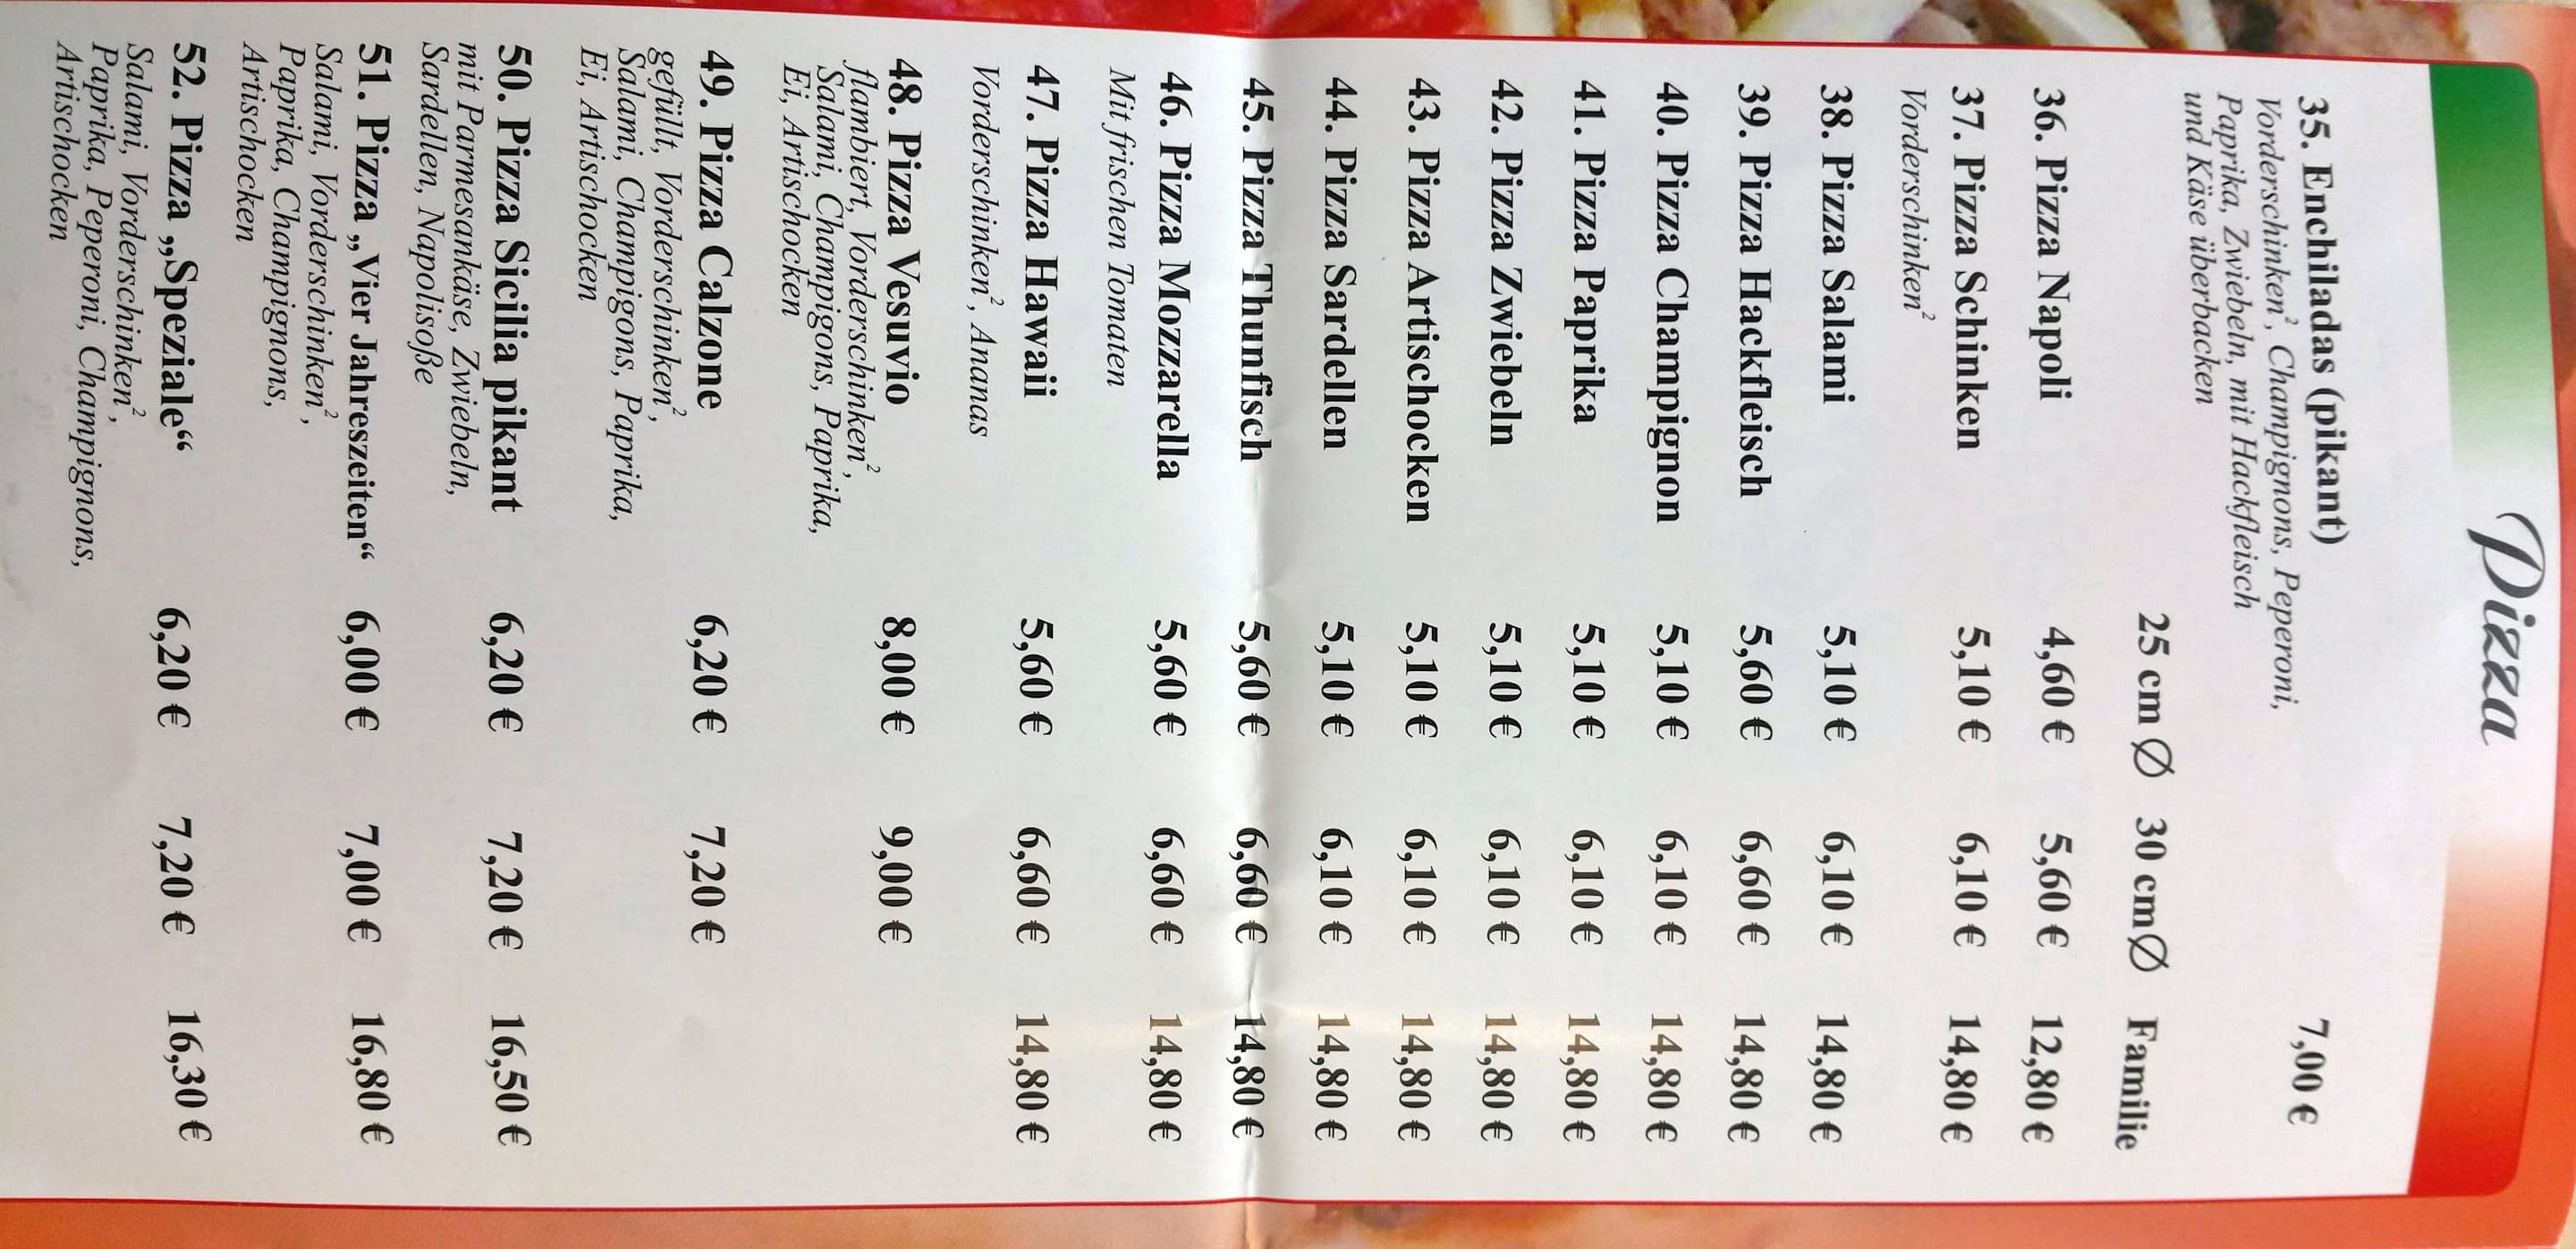 Pizza
35. Enchiladas (pikant) 7,00 €
Vorderschinken², Champignons, Peperoni,
Paprika, Zwiebeln, mit Hackfleisch
und Käse überbacken
25 cm Ø 30 cmØ Familie
36. Pizza Napoli 4,60 € 5,60 € 12,80 €
37. Pizza Schinken 5,10 € 6,10 € 14,80 €
Vorderschinken²
38. Pizza Salami 5,10 € 6,10 € 14,80 €
39. Pizza Hackfleisch 5,60 € 6,60 € 14,80 €
40. Pizza Champignon 5,10 € 6,10 € 14,80 €
41. Pizza Paprika 5,10 € 6,10 € 14,80 €
42. Pizza Zwiebeln 5,10 € 6,10 € 14,80 €
43. Pizza Artischocken 5,10 € 6,10 € 14,80 €
44. Pizza Sardellen 5,10 € 6,10 € 14,80 €
45. Pizza Thunfisch 5,60 € 6,60 € 14,80 €
46. Pizza Mozzarella 5,60 € 6,60 € 14,80 €
Mit frischen Tomaten
47. Pizza Hawaii 5,60 € 6,60 € 14,80 €
Vorderschinken², Ananas
48. Pizza Vesuvio 8,00 € 9,00 €
flambiert, Vorderschinken²,
Salami, Champigons, Paprika,
Ei, Artischocken
49. Pizza Calzone 6,20 € 7,20 €
gefüllt, Vorderschinken²,
Salami, Champigons, Paprika,
Ei, Artischocken
50. Pizza Sicilia pikant 6,20 € 7,20 € 16,50 €
mit Parmesankäse, Zwiebeln,
Sardellen, Napolisoße
51. Pizza „Vier Jahreszeiten“ 6,00 € 7,00 € 16,80 €
Salami, Vorderschinken²,
Paprika, Champignons,
Artischocken
52. Pizza „Speziale“ 6,20 € 7,20 € 16,30 €
Salami, Vorderschinken²,
Paprika, Peperoni, Champignons,
Artischocken